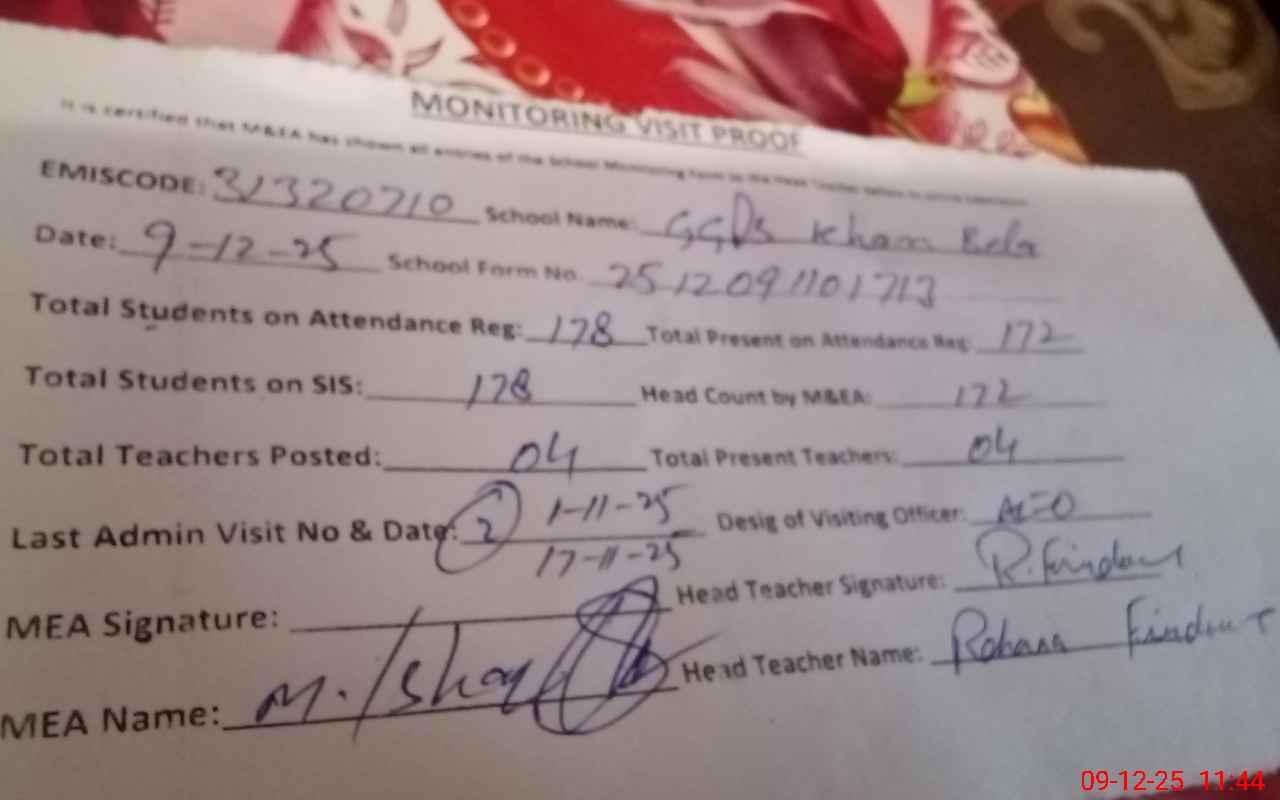 MONITORING VISIT PROOF
It is certified that M&EA has shown all entries of the School Monitoring Form to the Head Teacher before
EMISCODE: 31320710 School Name: GGPS Kham Bela
Date: 9-12-25 School Form No. 2512091101713
Total Students on Attendance Reg: 178 Total Present on Attendance Reg: 172
Total Students on SIS: 178 Head Count by M&EA: 172
Total Teachers Posted: 04 Total Present Teachers: 04
Last Admin Visit No & Date: 2 1-11-25 Desig of Visiting Officer: AEO
17-11-25
MEA Signature: Head Teacher Signature:
MEA Name: M. Head Teacher Name:
09-12-25 11:44